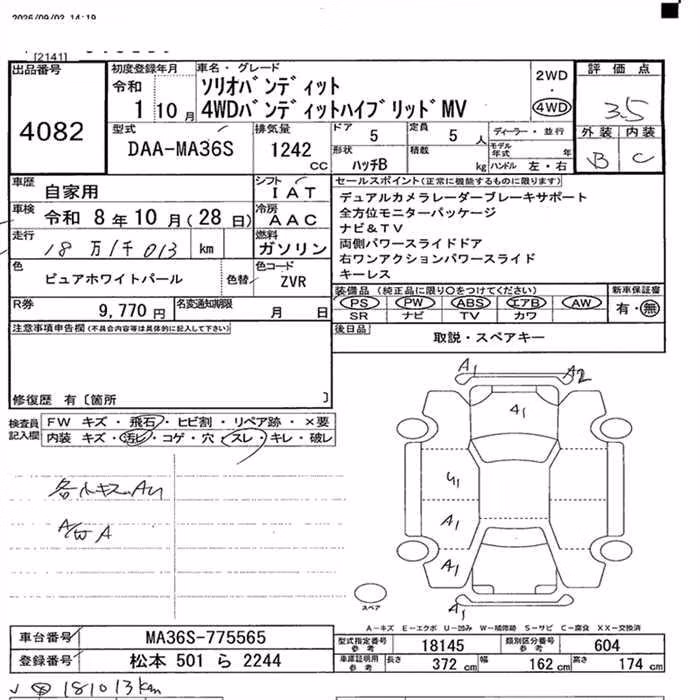 2026/09/02 14:19
[2141]
出品番号
4082
初度登録年月
令和
1 10月
車名・グレード
ソリオバンディット
4WDバンディットハイブリッドMV
2WD
・
4WD
評価点
3.5
外装 内装
B C
型式
DAA-MA36S
排気量
1242 CC
ドア 5
定員 5 人
形状 ハッチB
積載 kg
ディーラー・並行
モデル年式 年
ハンドル 左・右
車歴
自家用
シフト
IAT
車検
令和 8年10月(28日)
冷房
AAC
走行
18万1千013 km
燃料
ガソリン
色
ピュアホワイトパール
色替
色コード
ZVR
R券
9,770円
名変通知期限
月 日
セールスポイント(正常に機能するものに限ります)
デュアルカメラレーダーブレーキサポート
全方位モニターパッケージ
ナビ&TV
両側パワースライドドア
右ワンアクションパワースライド
キーレス
装備品 (純正品に限り○をつけてください)
PS PW ABS エアB AW
SR ナビ TV カワ
新車保証書
有・無
後日品
取説・スペアキー
注意事項申告欄(不具合内容等は具体的に記入して下さい)
修復歴 有〔箇所 〕
検査員
記入欄
FW キズ・飛石・ヒビ割・リペア跡・×要
内装 キズ・汚レ・コゲ・穴・スレ・キレ・破レ
A/W A
A1
A2
A1
A1
A1
A1
スペア
A-キズ E-エクボ U-凹み W-補修跡 S-サビ C-腐食 XX-交換済
車台番号
MA36S-775565
登録番号
松本 501 ら 2244
型式指定番号
参考
18145
類別区分番号
参考
604
車庫証明用
参考
長さ 372 cm
幅 162 cm
高さ 174 cm
181013km